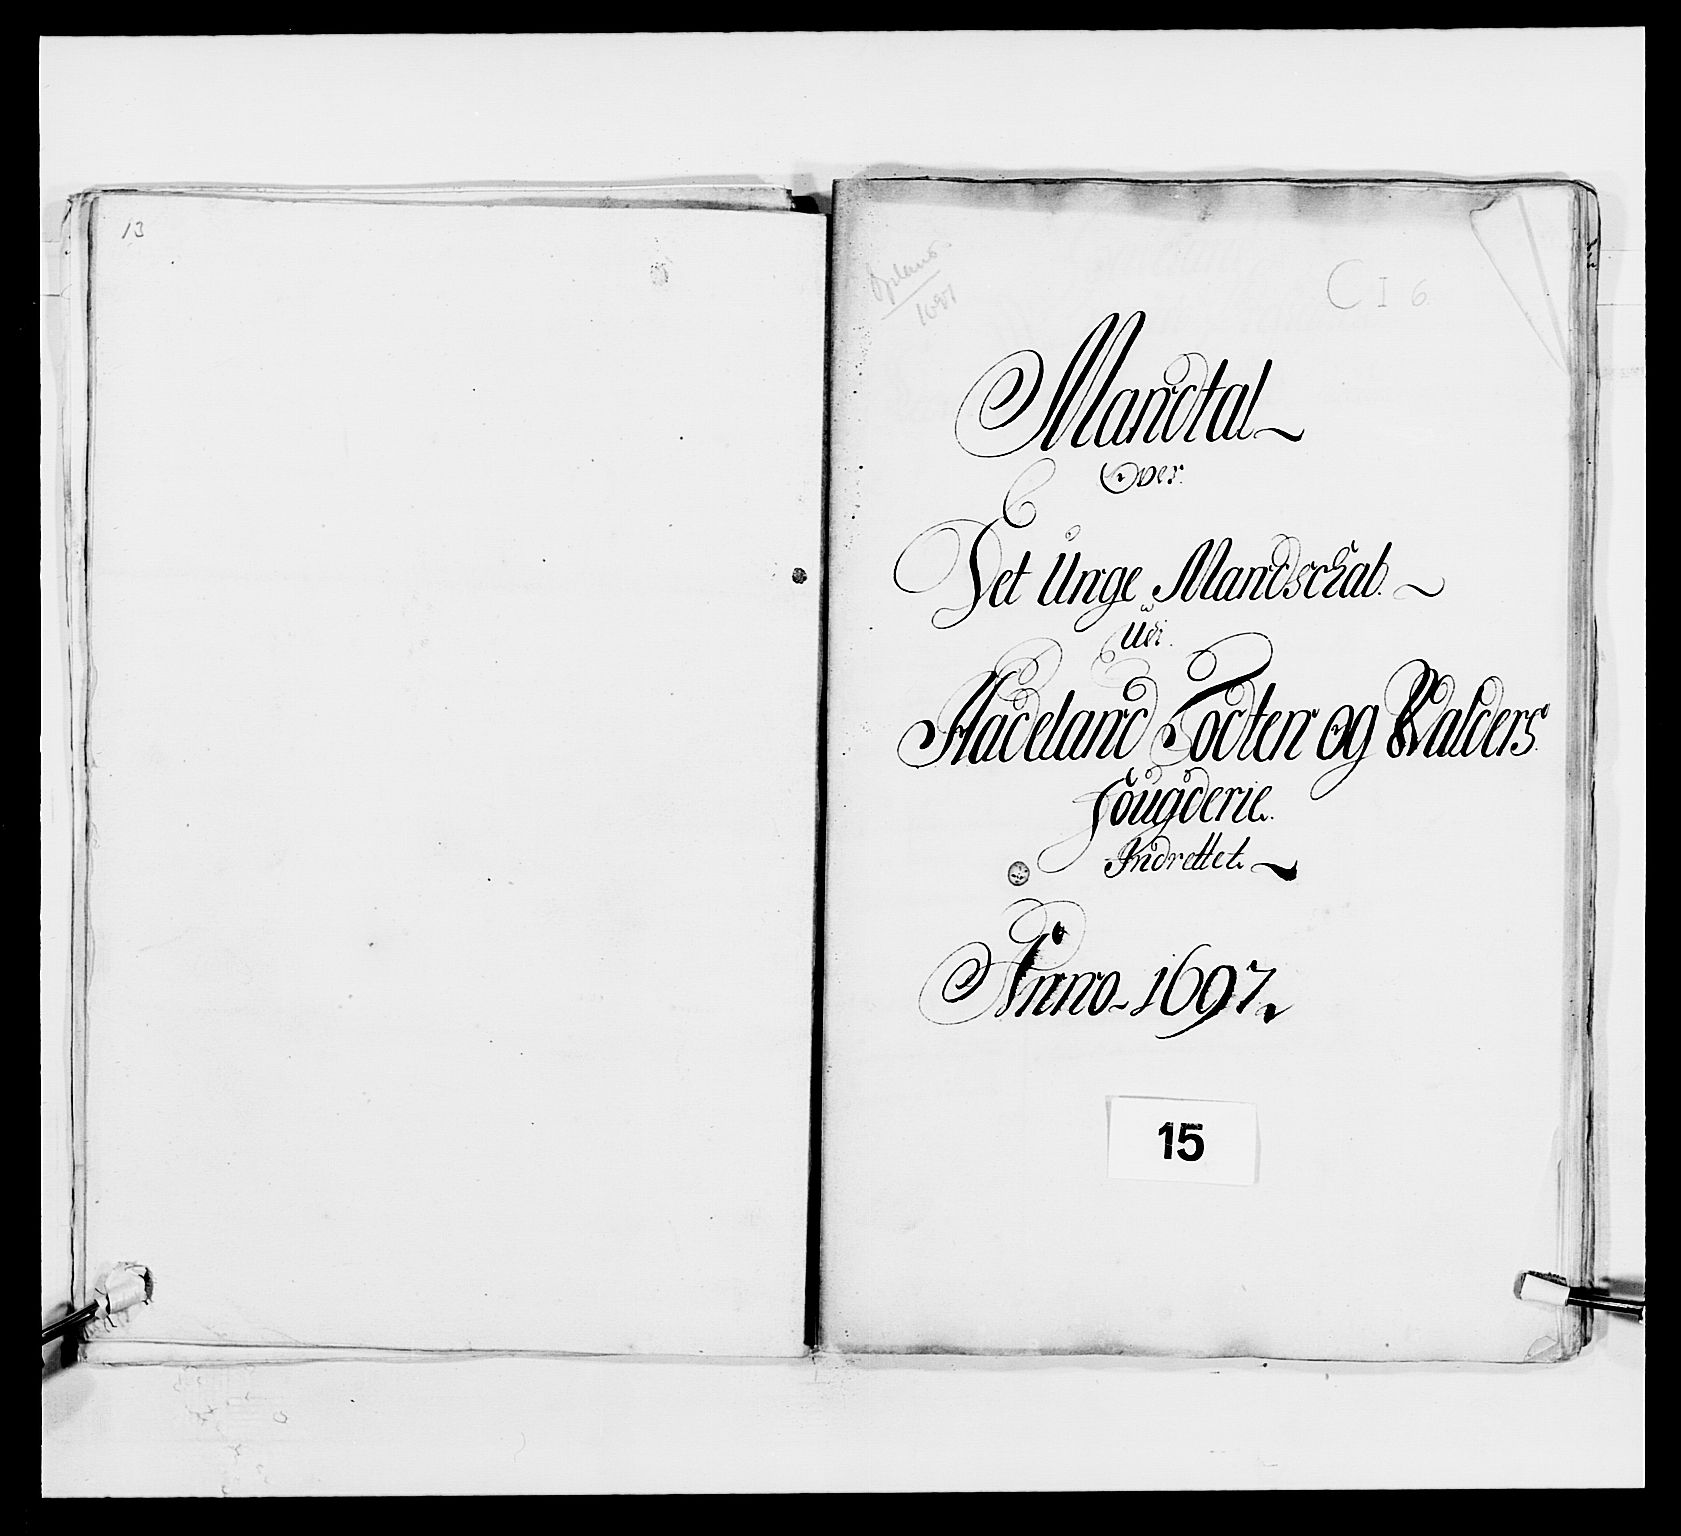 13
Opland
1697
C I 6
Mandtal
Over
Det Unge Mandschab
Udi
Hadeland Todten og Walders
Fougderie
Indrettet
Anno 1697
15